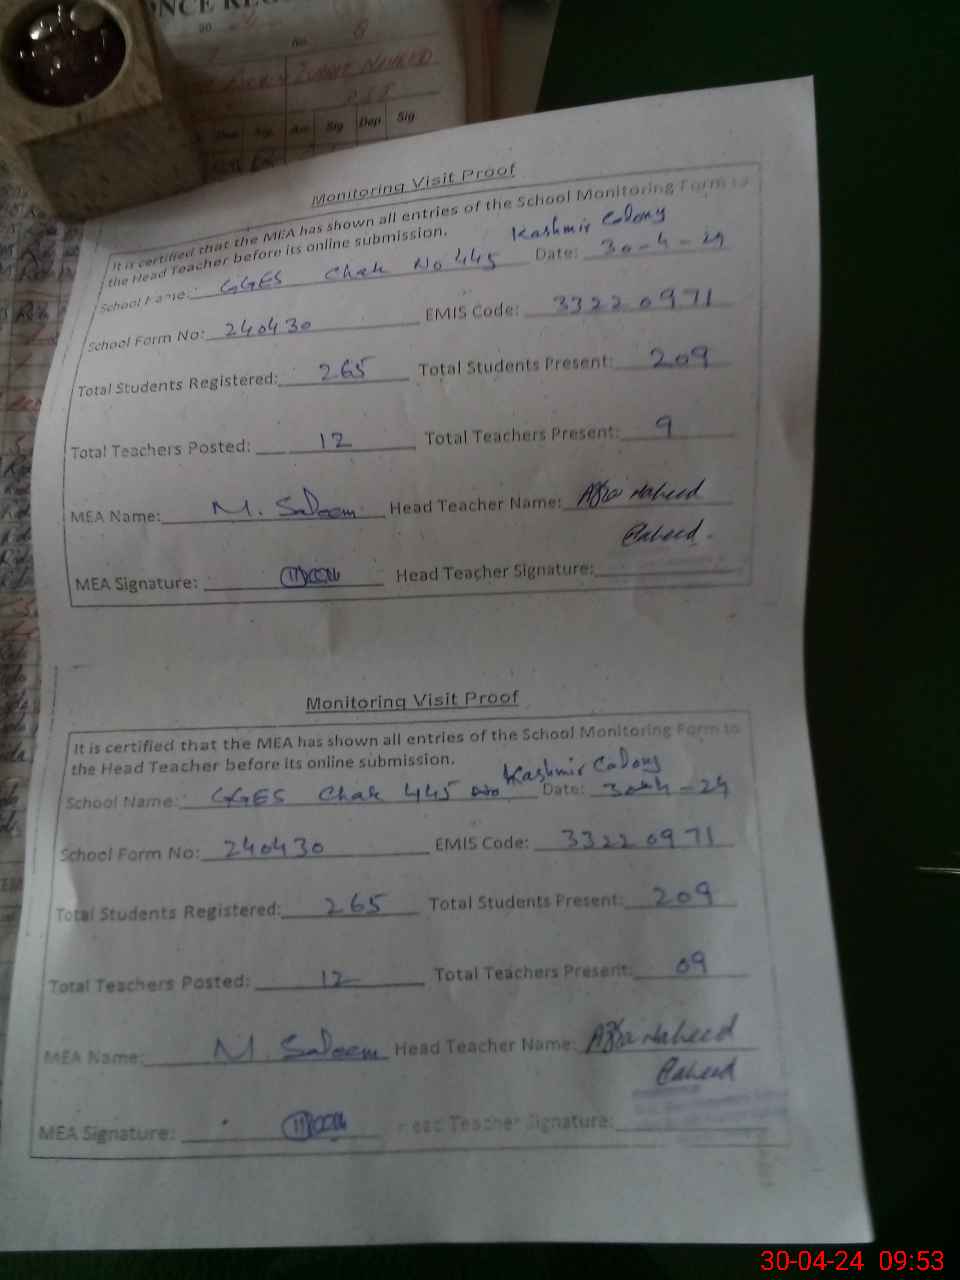 No. 8
Dep Sig. Arr Sig Dep Sig.
Monitoring Visit Proof
It is certified that the MEA has shown all entries of the School Monitoring Form to
the Head Teacher before its online submission.
Kashmir Colony
School Name: GGES Chak No 445 Date: 30-4-24
School Form No: 240430 EMIS Code: 33220971
Total Students Registered: 265 Total Students Present: 209
Total Teachers Posted: 12 Total Teachers Present: 9
MEA Name: M. Saleem Head Teacher Name: Naheed
MEA Signature: Head Teacher Signature:
Monitoring Visit Proof
It is certified that the MEA has shown all entries of the School Monitoring Form to
the Head Teacher before its online submission.
Kashmir Colony
School Name: GGES Chak 445 Date: 30-4-24
School Form No: 240430 EMIS Code: 33220971
Total Students Registered: 265 Total Students Present: 209
Total Teachers Posted: 12 Total Teachers Present: 09
MEA Name: M. Saleem Head Teacher Name: Naheed
MEA Signature: Head Teacher Signature:
30-04-24 09:53